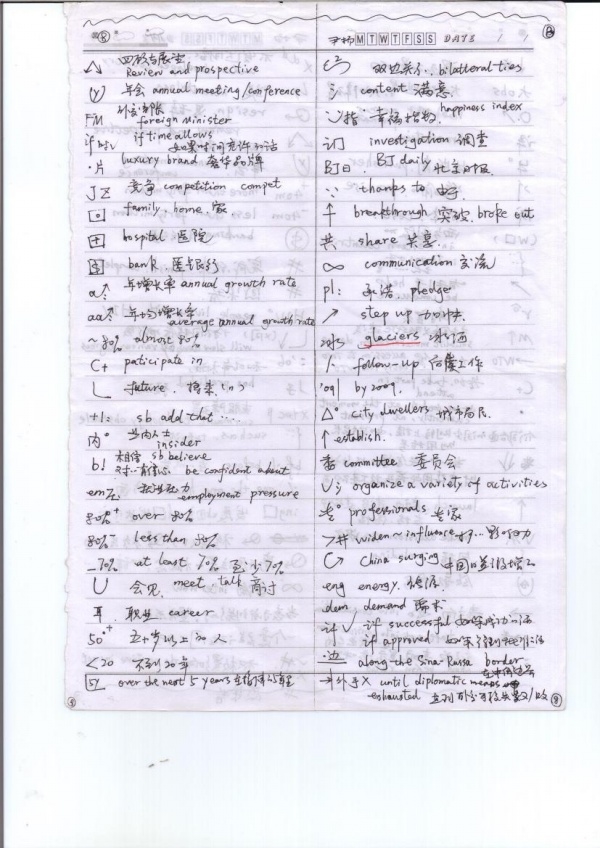 M T W T F S S DATE / /
Review and prospective
(y) 年会 annual meeting/conference
FM foreign minister
if time allows
如果时间允许的话
·片 luxury brand 奢华品牌
JZ 竞争 competition compet
family, home, 家
hospital 医院
bank 银行
a↑ 年增长率 annual growth rate
aa↑ 年均增长率
average annual growth rate
~80% almost 80%
C+ paticipate in
future, 将来
+1: sb add that ····
内° 当内人士
insider
b! 相信 sb believe
be confident about
em压 就业压力
employment pressure
80%+ over 80%
80%- less than 80%
_70% at least 70% 至少70%
U 会见, meet, talk 商讨
耳, 职业 career
50°+ 五十岁以上的人
<20 不到20年
5y over the next 5 years
双边关系, bilateral ties
content 满意
指 幸福指数, happiness index
investigation 调查
BJ日, BJ daily 北京日报
∵ thanks to 由于
↑ breakthrough 突破, broke out
共 share 共享
∞ communication 交流
pl: 承诺 pledge
↗ step up 加快
glaciers 冰河
follow-up 后续工作
'09| by 2009,
△° city dwellers 城市居民
↑ establish.
委 committee 委员会
organize a variety of activities
professionals 专家
widen ~ influence 影响力
China surging
eng energy, 能源
dem demand 需求
if successful 如果成功的话
if approved
边 along the Sina-Russa border
→外手X until diplomatic means
exhausted